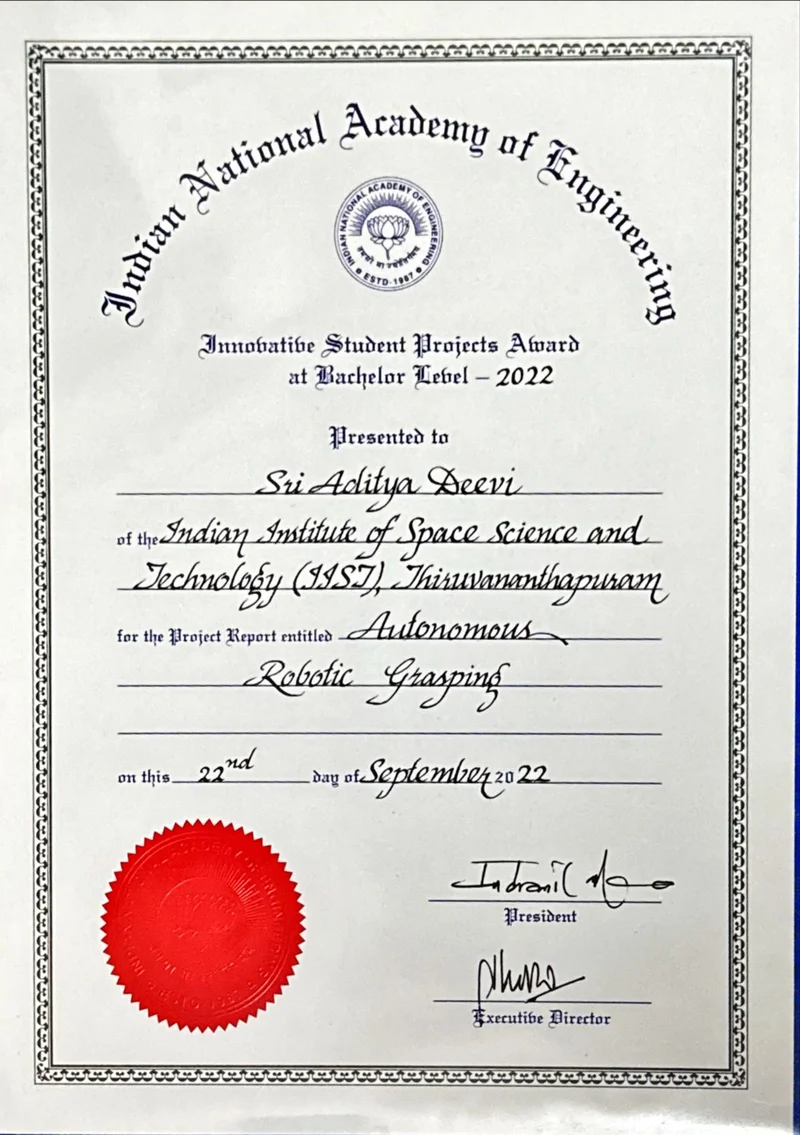 Indian National Academy of Engineering
INDIAN NATIONAL ACADEMY OF ENGINEERING
ESTD-1987
Innovative Student Projects Award
at Bachelor Level – 2022
Presented to
Sri Aditya Deevi
of the Indian Institute of Space Science and
Technology (IIST), Thiruvananthapuram
for the Project Report entitled Autonomous
Robotic Grasping
on this 22nd day of September 2022
Indranil
President
Executive Director